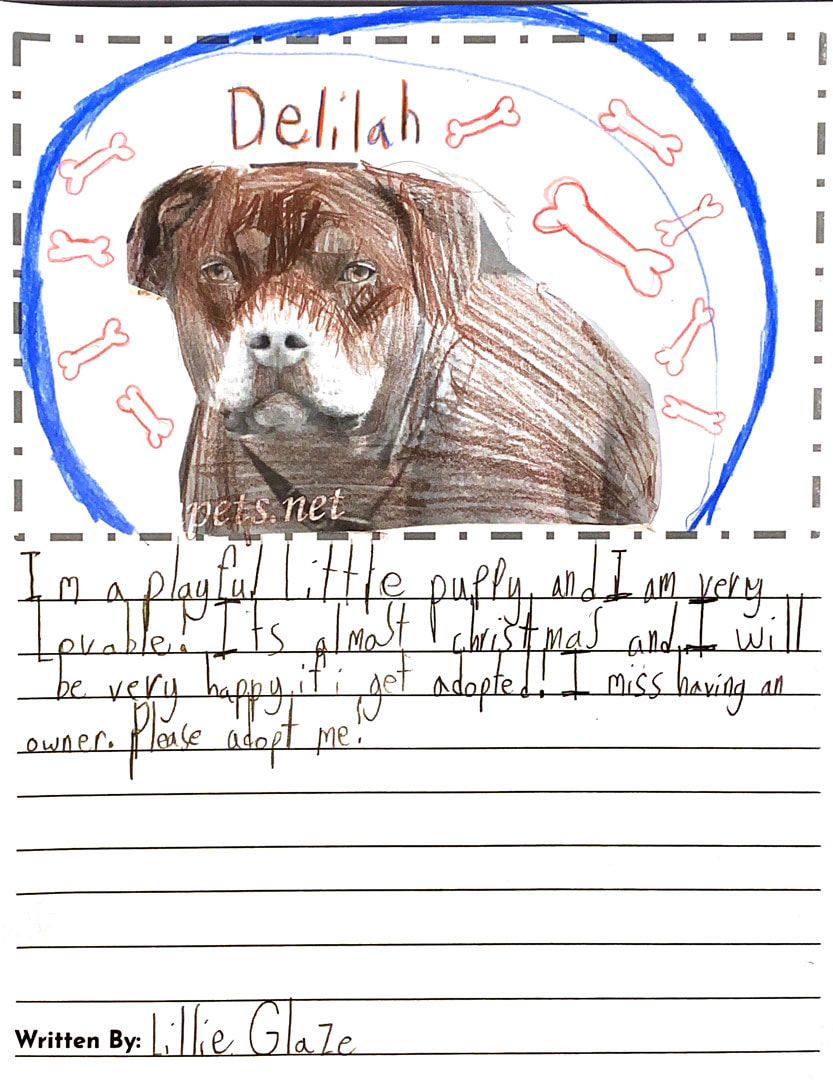 Delilah
pets.net
I m a playful little puppy, and I am very
Lovable! Its almost christmas and I will
be very happy if i get adopted! I miss having an
owner. Please adopt me!
Written By: Lillie Glaze